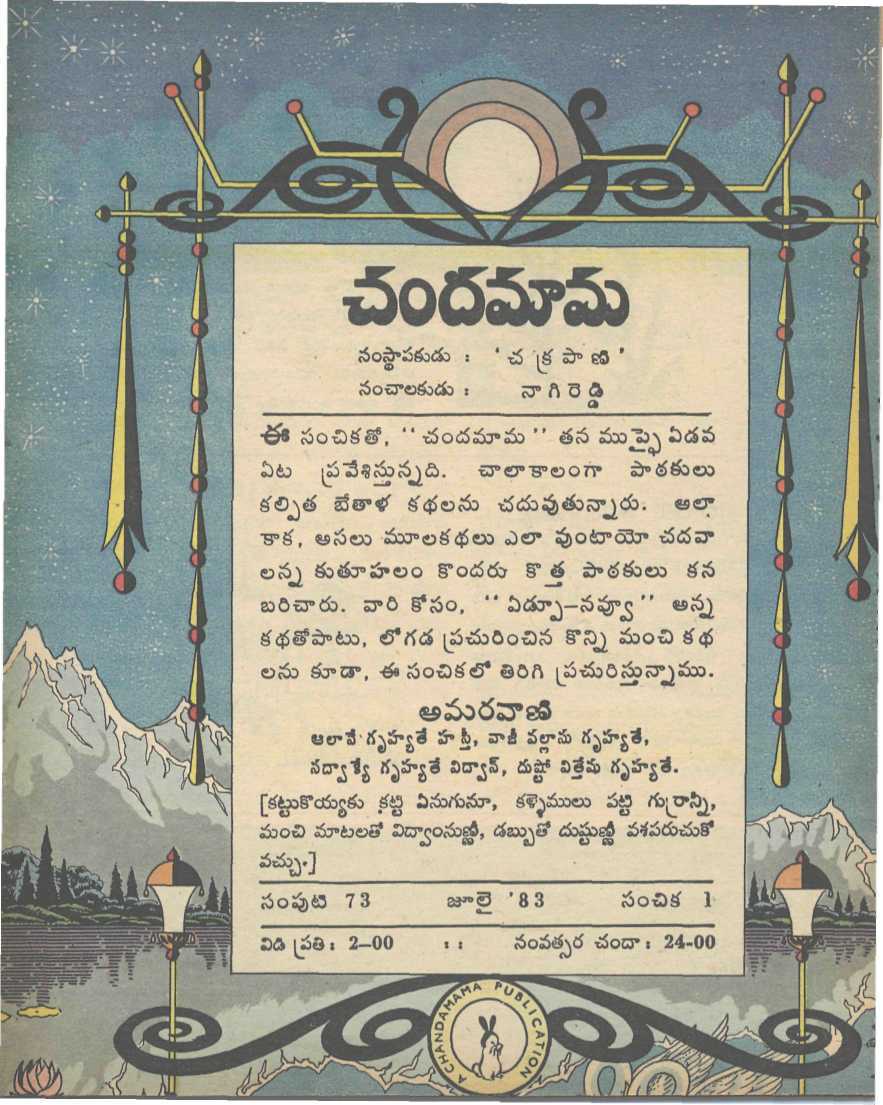 చందమామ
సంస్థాపకుడు : 'చక్రపాణి'
సంచాలకుడు : నాగిరెడ్డి
ఈ సంచికతో, ''చందమామ'' తన ముప్ఫై ఏడవ
ఏట ప్రవేశిస్తున్నది. చాలాకాలంగా పాఠకులు
కల్పిత బేతాళ కథలను చదువుతున్నారు. అలా
కాక, అసలు మూలకథలు ఎలా వుంటాయో చదవా
లన్న కుతూహలం కొందరు కొత్త పాఠకులు కన
బరిచారు. వారి కోసం, ''ఏడ్పూ—నవ్వూ'' అన్న
కథతోపాటు, లోగడ ప్రచురించిన కొన్ని మంచి కథ
లను కూడా, ఈ సంచికలో తిరిగి ప్రచురిస్తున్నాము.
అమరవాణి
ఆలానే గృహ్యతే హస్తీ, వాజీ వల్గాసు గృహ్యతే,
సద్వాక్యే గృహ్యతే విద్వాన్, దుష్టో విత్తేషు గృహ్యతే.
[కట్టుకొయ్యకు కట్టి ఏనుగునూ, కళ్ళెములు పట్టి గుర్రాన్నీ,
మంచి మాటలతో విద్వాంసుణ్ణీ, డబ్బుతో దుష్టుణ్ణీ వశపరుచుకో
వచ్చు.]
సంపుటి 73 జూలై '83 సంచిక 1
విడి ప్రతి : 2—00 : : సంవత్సర చందా : 24-00
A CHANDAMAMA PUBLICATION